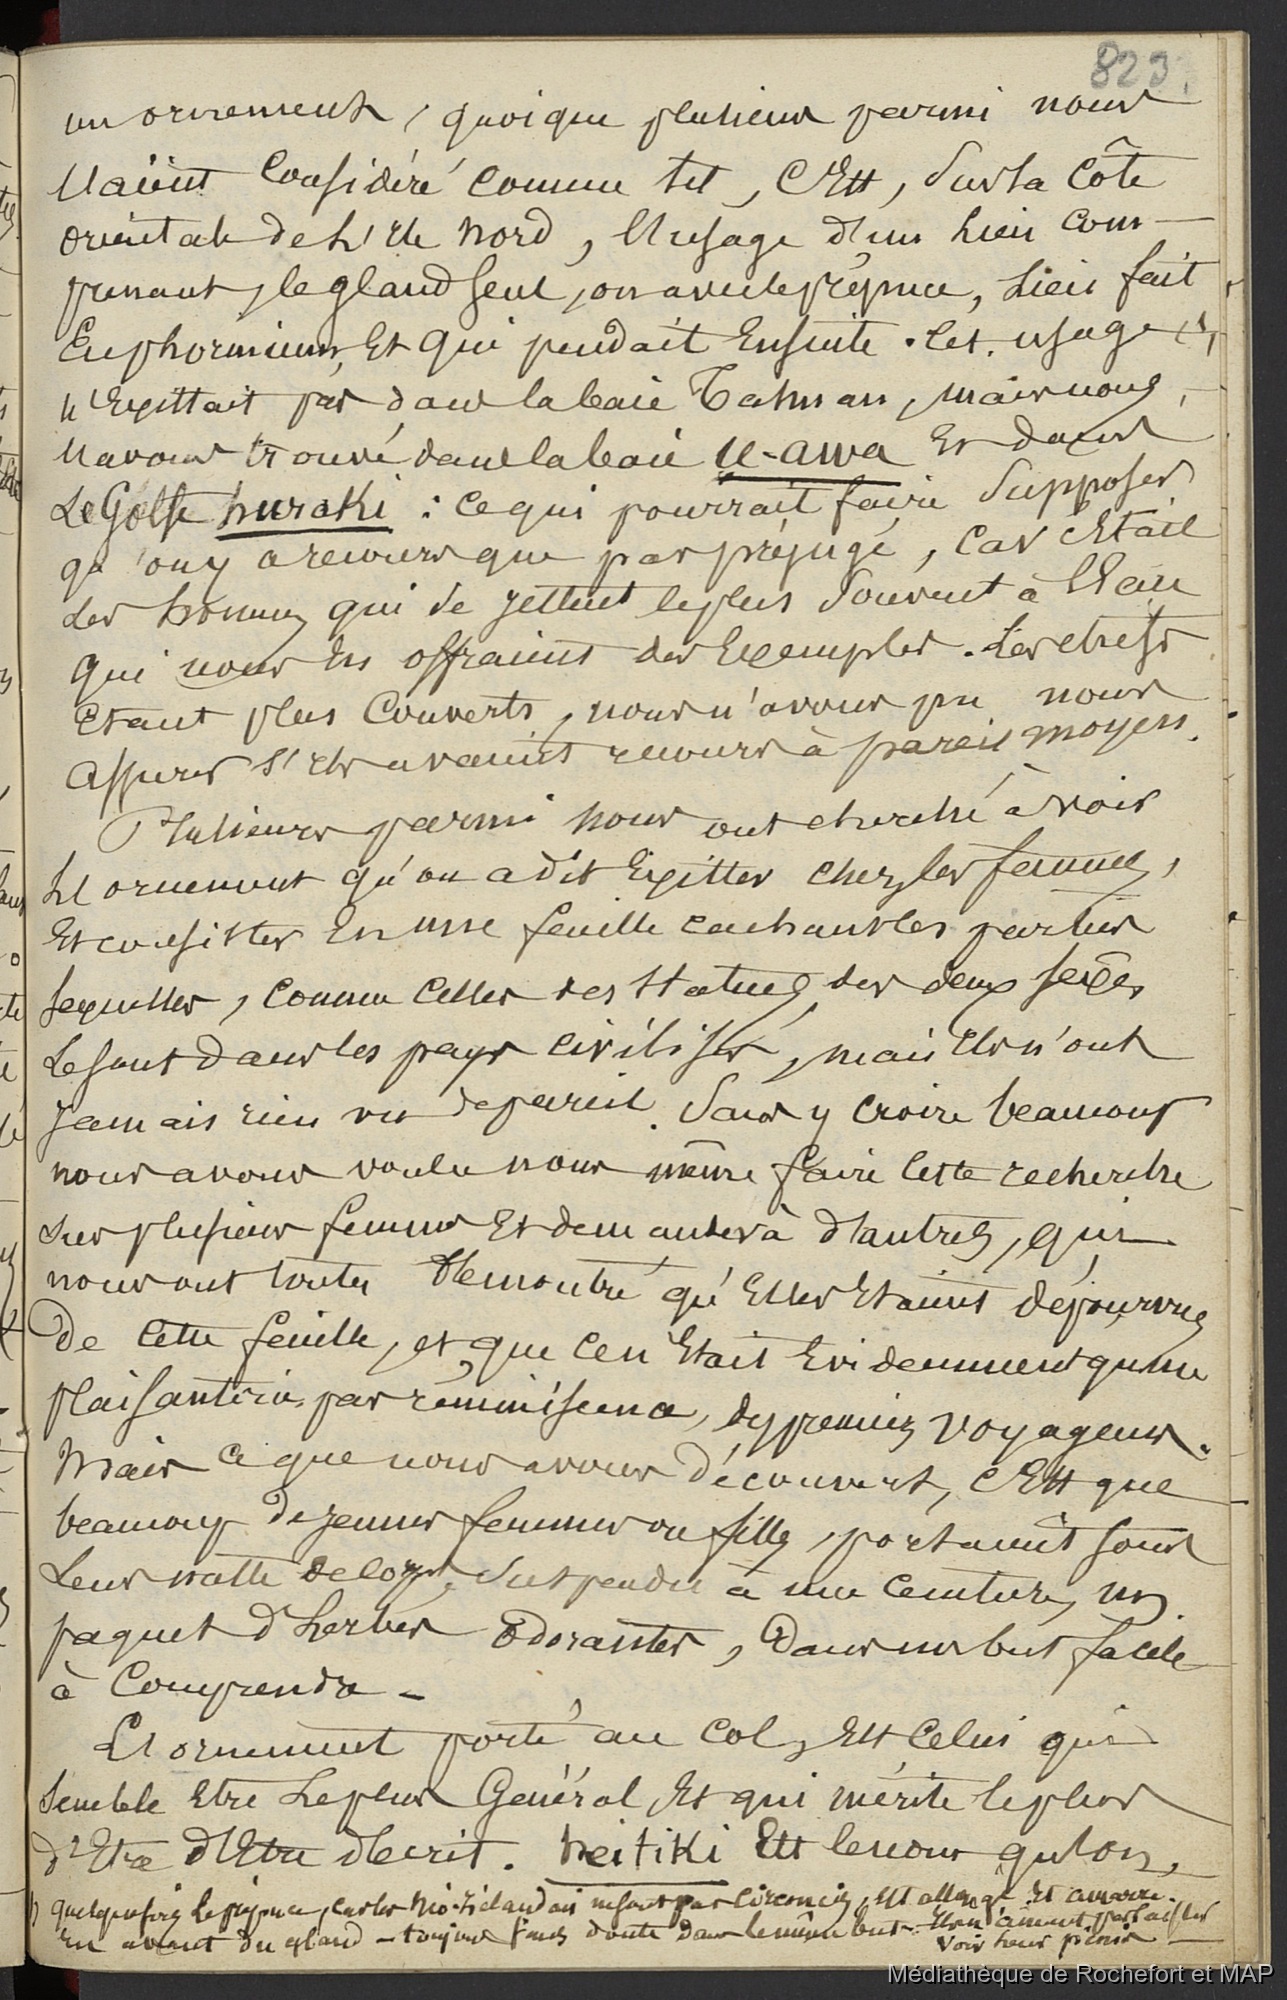 823.
un ornement, quoique plusieurs parmi nous
l'aient considéré comme tel, c'est, sur la côte
orientale de l'ile nord, l'usage d'un lien com-
prenant, le gland seul, ou avec le prépuce, lien fait
en phormium, et qui pendait ensuite. Cet usage (1)
n'existait pas dans la baie Tasman, mais nous
l'avons trouvé dans la baie U-awa et dans
le Golfe huraki : ce qui pourrait faire supposer
qu'on y a recours que par préjugé, car c'etait
les hommes qui se jettent le plus souvent à l'eau
qui nous en offraient des exemples. Les chefs
etant plus couverts, nous n'avons pu nous
assurer s'ils avaient recours à pareil moyen.
Plusieurs parmi nous ont cherché à voir
l'ornement qu'on a dit exister chez les femmes,
et consister en une feuille cachant les parties
sexuelles, comme celles des statues des deux sexes
le sont dans les pays civilisés, mais ils n'ont
jamais rien vu de pareil. Sans y croire beaucoup
nous avons voulu nous même faire cette recherche
sur plusieurs femmes et demander à d'autres, qui
nous ont toutes démontré qu'elles etaient dépourvues
de cette feuille, et que ce n'etait evidemment qu'une
plaisanterie, par réminiscence, des premiers voyageurs.
Mais ce que nous avons découvert, c'est que
beaucoup de jeunes femmes ou filles, portaient sous
leur natte de corps, suspendu à une ceinture, un
paquet d'herbes odorantes, dans un but facile
à comprendre -
L'ornement porté au col, est celui qui
semble etre le plus général, et qui mérite le plus
d'etre d'etre decrit. heitiki est le nom qu'on
1) quelquefois le prépuce, car les Néo-Zélandais ne sont pas circoncis, est allongé et amarré
en avant du gland - toujours sans doute dans le même but - Ils n'aiment pas laisser
voir leur pénis -
Médiathèque de Rochefort et MAP